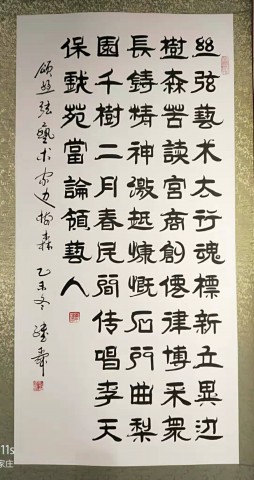 絲弦藝术太行魂標新立異边
樹森苦读宮商創僊律博采衆
長鑄精神激越慷慨石門曲梨
園千樹二月春民間传唱李天
保戯苑當論領藝人
頌丝弦藝术家边樹森 乙未冬
11s
家庄